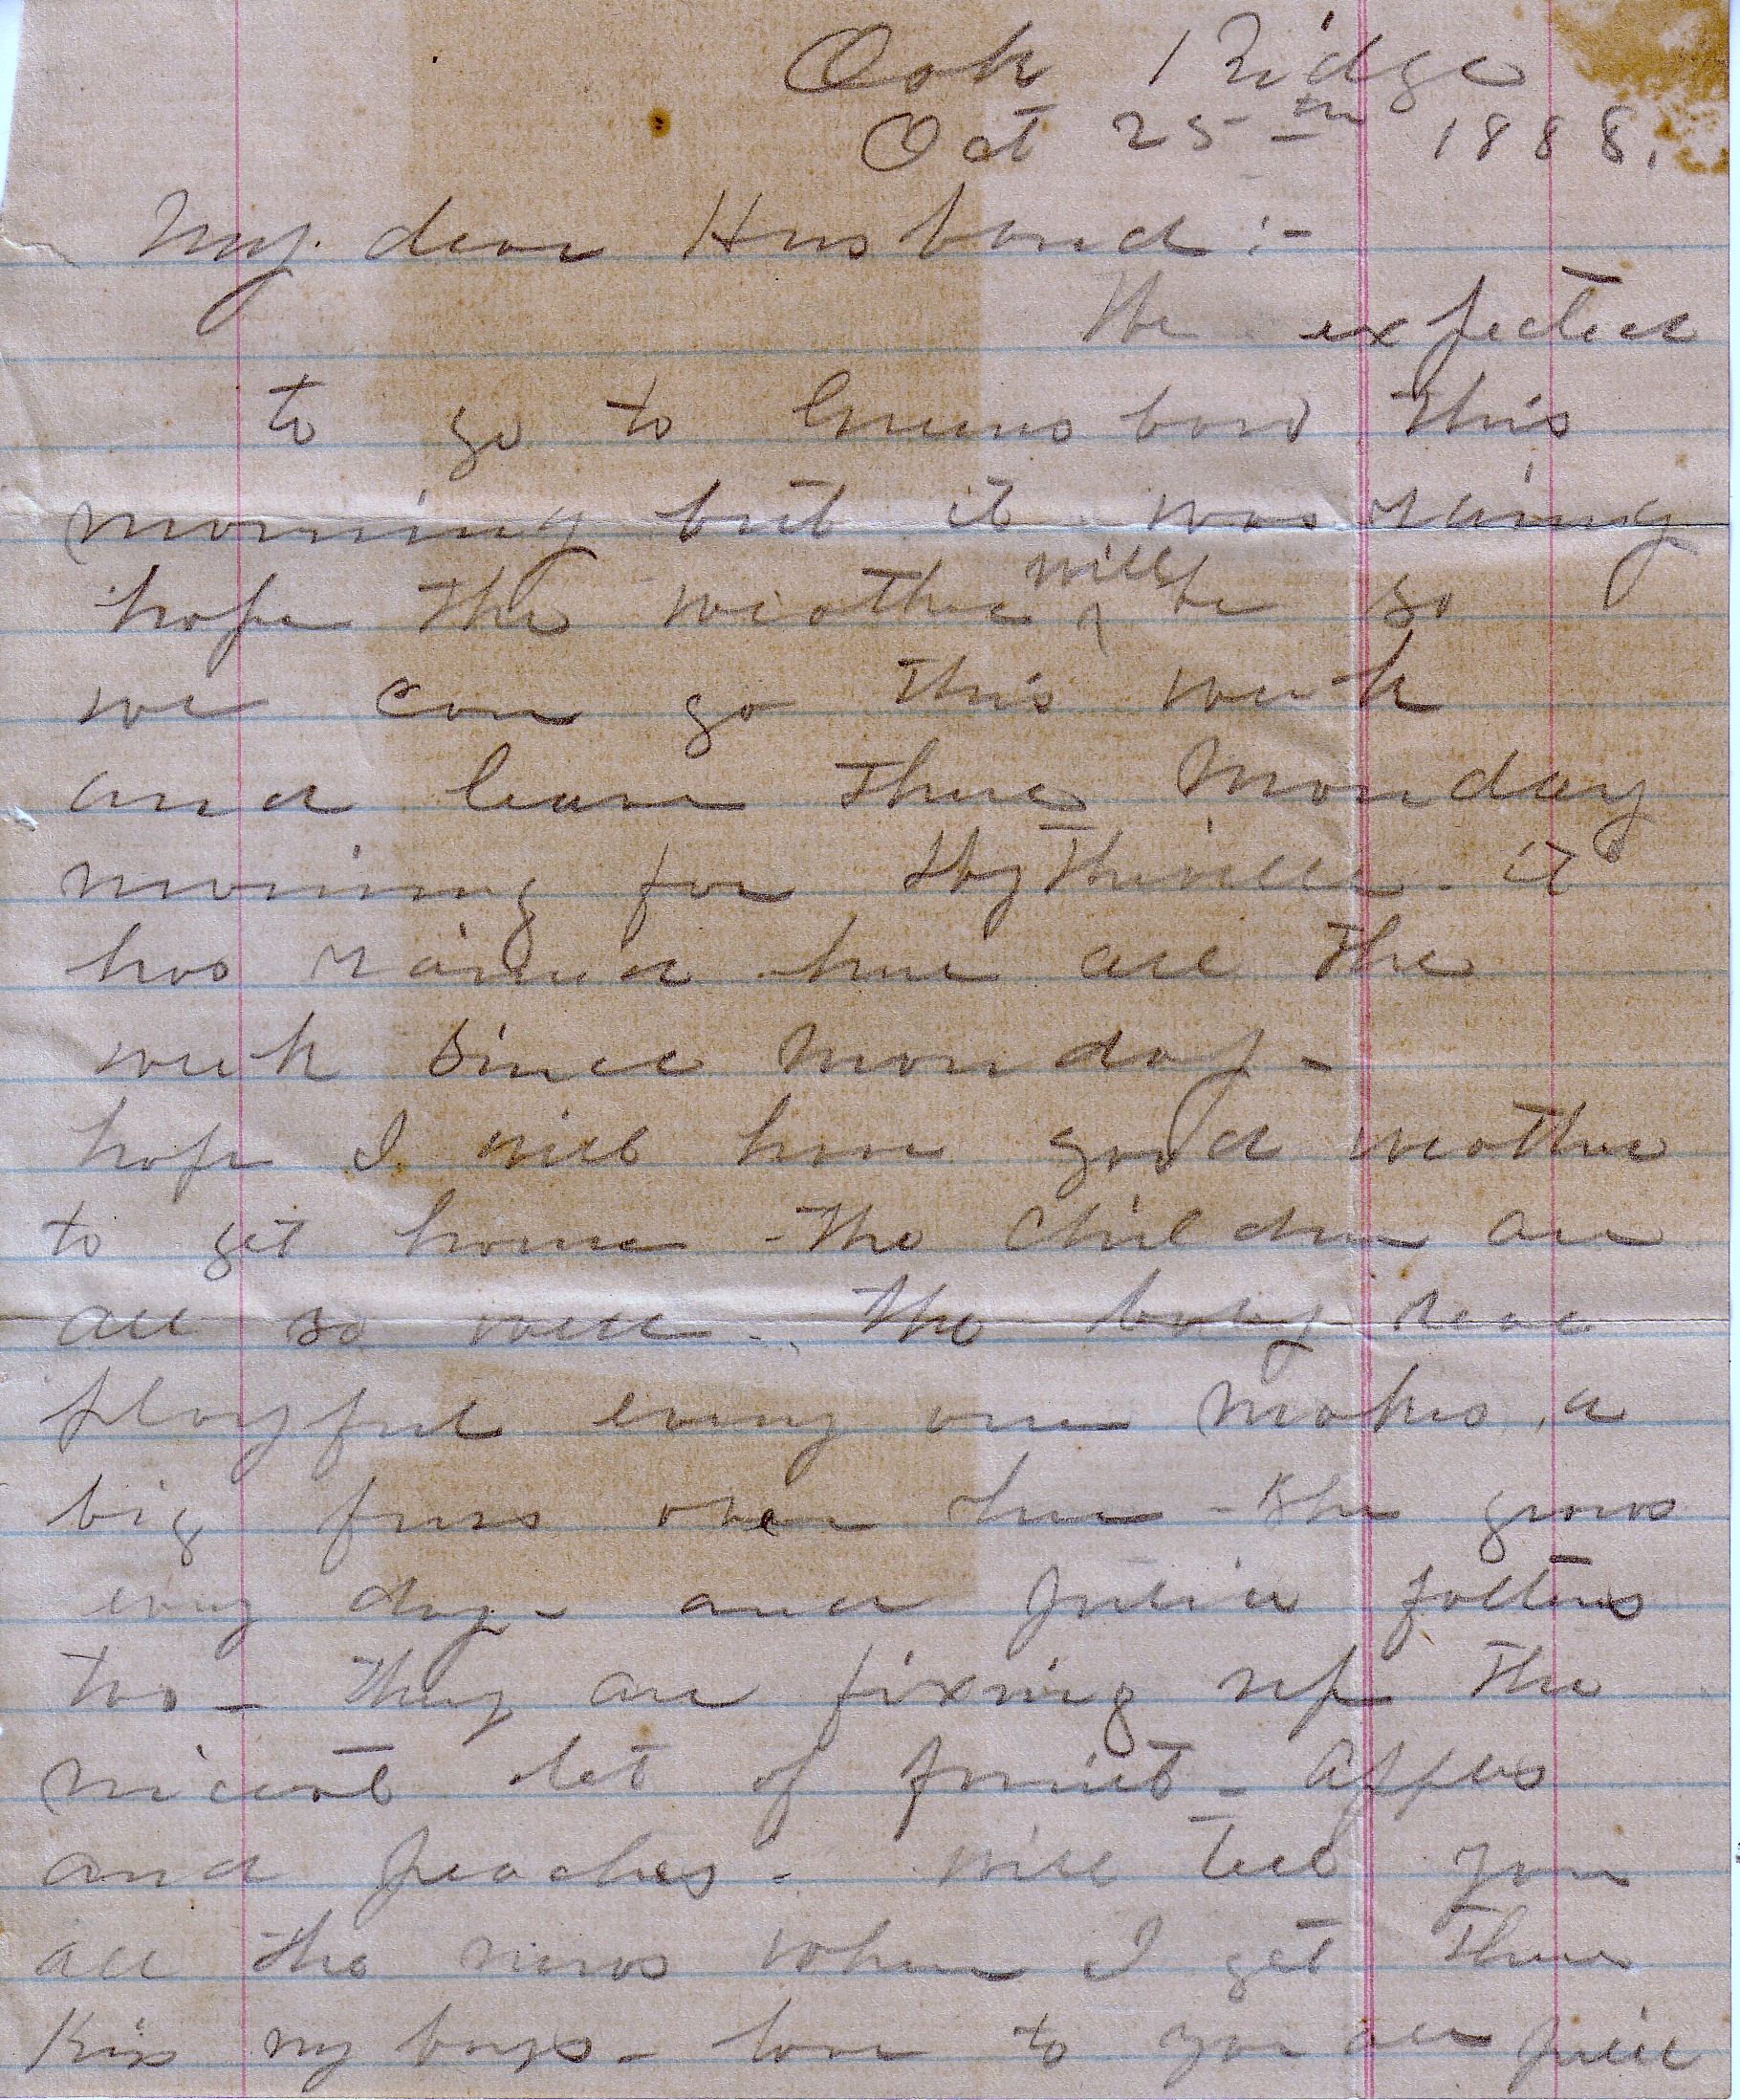 Oak Ridge
Oct 25th 1888.
My dear Husband :-
We expected
to go to Greensboro this
morning but it was raining
hope the weather will be so
we can go this week
and leave there Monday
morning for Wytheville - it
has rained here all the
week since Monday -
hope I will have good weather
to get home - The children are
all so well - The baby real
playful every one makes a
big fuss over her - She grows
every day - and Julia fattens
too - They are fixing up the
nicest lot of fruit - apples
and peaches - will tell you
all the news when I get there
Kiss my boys - love to you all